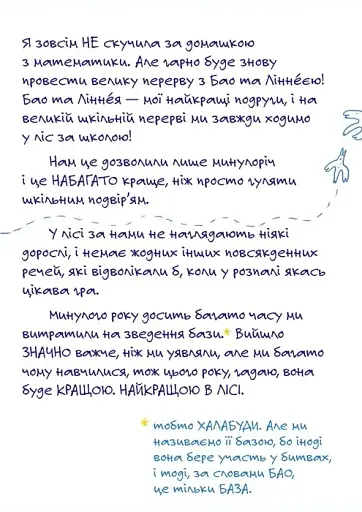 Я зовсім НЕ скучила за домашкою
з математики. Але гарно буде знову
провести велику перерву з Бао та Ліннéєю!
Бао та Ліннéя — мої найкращі подруги, і на
великій шкільній перерві ми завжди ходимо
у ліс за школою!
Нам це дозволили лише минулоріч
і це НАБАГАТО краще, ніж просто гуляти
шкільним подвір’ям.
У лісі за нами не наглядають ніякі
дорослі, і немає жодних інших повсякденних
речей, які відволікали б, коли у розпалі якась
цікава гра.
Минулого року досить багато часу ми
витратили на зведення бази.* Вийшло
ЗНАЧНО важче, ніж ми уявляли, але ми багато
чому навчилися, тож цього року, гадаю, вона
буде КРАЩОЮ. НАЙКРАЩОЮ В ЛІСІ.
* тобто ХАЛАБУДИ. Але ми
називаємо її базою, бо іноді
вона бере участь у битвах,
і тоді, за словами БАО,
це тільки БАЗА.